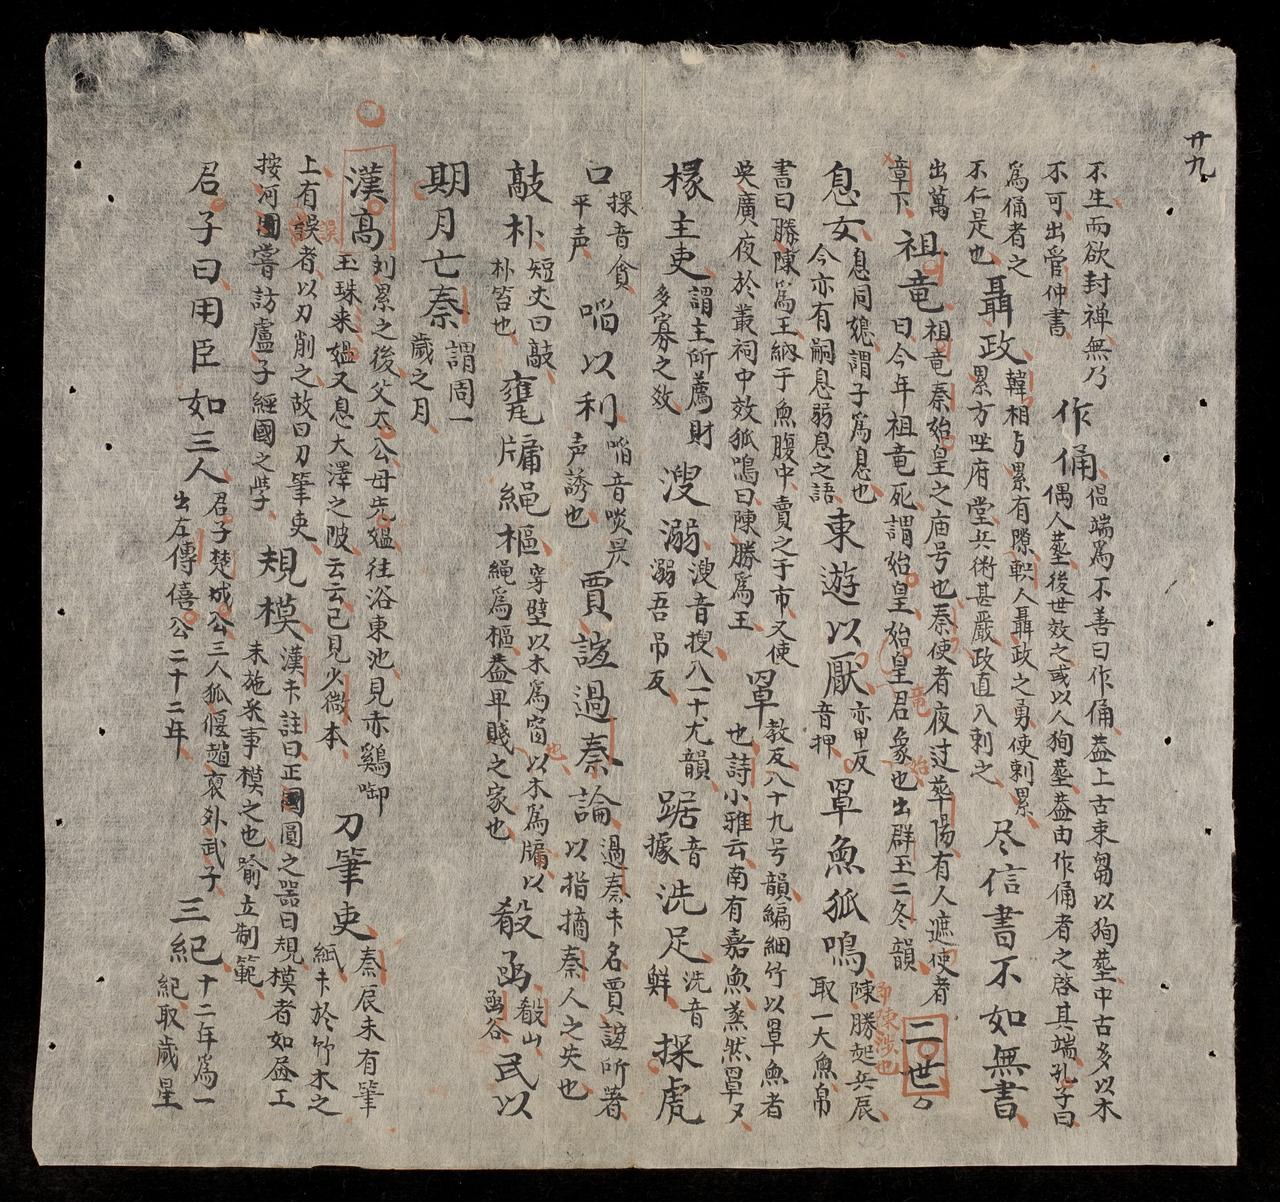 廿九
不生而欲封禅無乃 作俑 偘端為不善曰作俑盖上古束芻以狥葬中古多以木
不可出管仲書 偶人葬後世效之或以人狥葬盖由作俑者之啓其端孔子曰
為俑者之 聶政 韓相与累有隙軹人聶政之勇使刺累 尽信書不如無書
不仁是也 累方坐府堂兵術甚嚴政直入刺之
出萬 祖竜 祖竜秦始皇之庙号也秦使者夜过華陽有人遮使者 二世
章下 曰今年祖竜死謂始皇始皇君象也出群玉二冬韻
竜 始
息女 息同媳謂子為息也 東遊以厭 亦甲反 罩魚狐鳴 陳勝起兵辰
今亦有嗣息弱息之語 音押 取一大魚帛
即陳涉也
書曰勝陳為王納于魚腹中賣之于市又使 罩 教反八十九号韻編細竹以罩魚者
吳廣夜於叢祠中效狐鳴曰陳勝為王 也詩小雅云南有嘉魚烝然罩又
椽主吏 謂主所薦財 溲溺 溲音搜八一十尤韻 踞 音 洗足 洗音 探虎
多寡之效 溺吾吊反 據 鮮
口 探音貪 啗以利 啗音啖吳 賈誼過秦論 過秦未名賈誼所著
平声 声誘也 以指摘秦人之失也
敲朴 短丈曰敲 甕牖繩樞 穿壁以木為窗以木為牖以 殽函 殽山 武以
朴笞也 繩為樞盖卑賤之家也 函谷
也
期月亡秦 謂周一
歲之月
漢高 刘累之後父太公母先媼往浴東池見赤鷄啣 刀筆吏 秦辰未有筆
玉珠来媼又息大澤之陂云云已見少微本 紙未於竹木之
上有誤者以刀削之故曰刀筆吏 規模 漢未註曰正圓之器曰規模者如盎工
誤
按河圖嘗訪盧子經國之学 未施采事模之也喻立制範
君子曰用臣如三人 君子楚城公三人狐偃趙衰外武子 三紀 十二年為一
出左傳僖公二十二年 紀取歲星